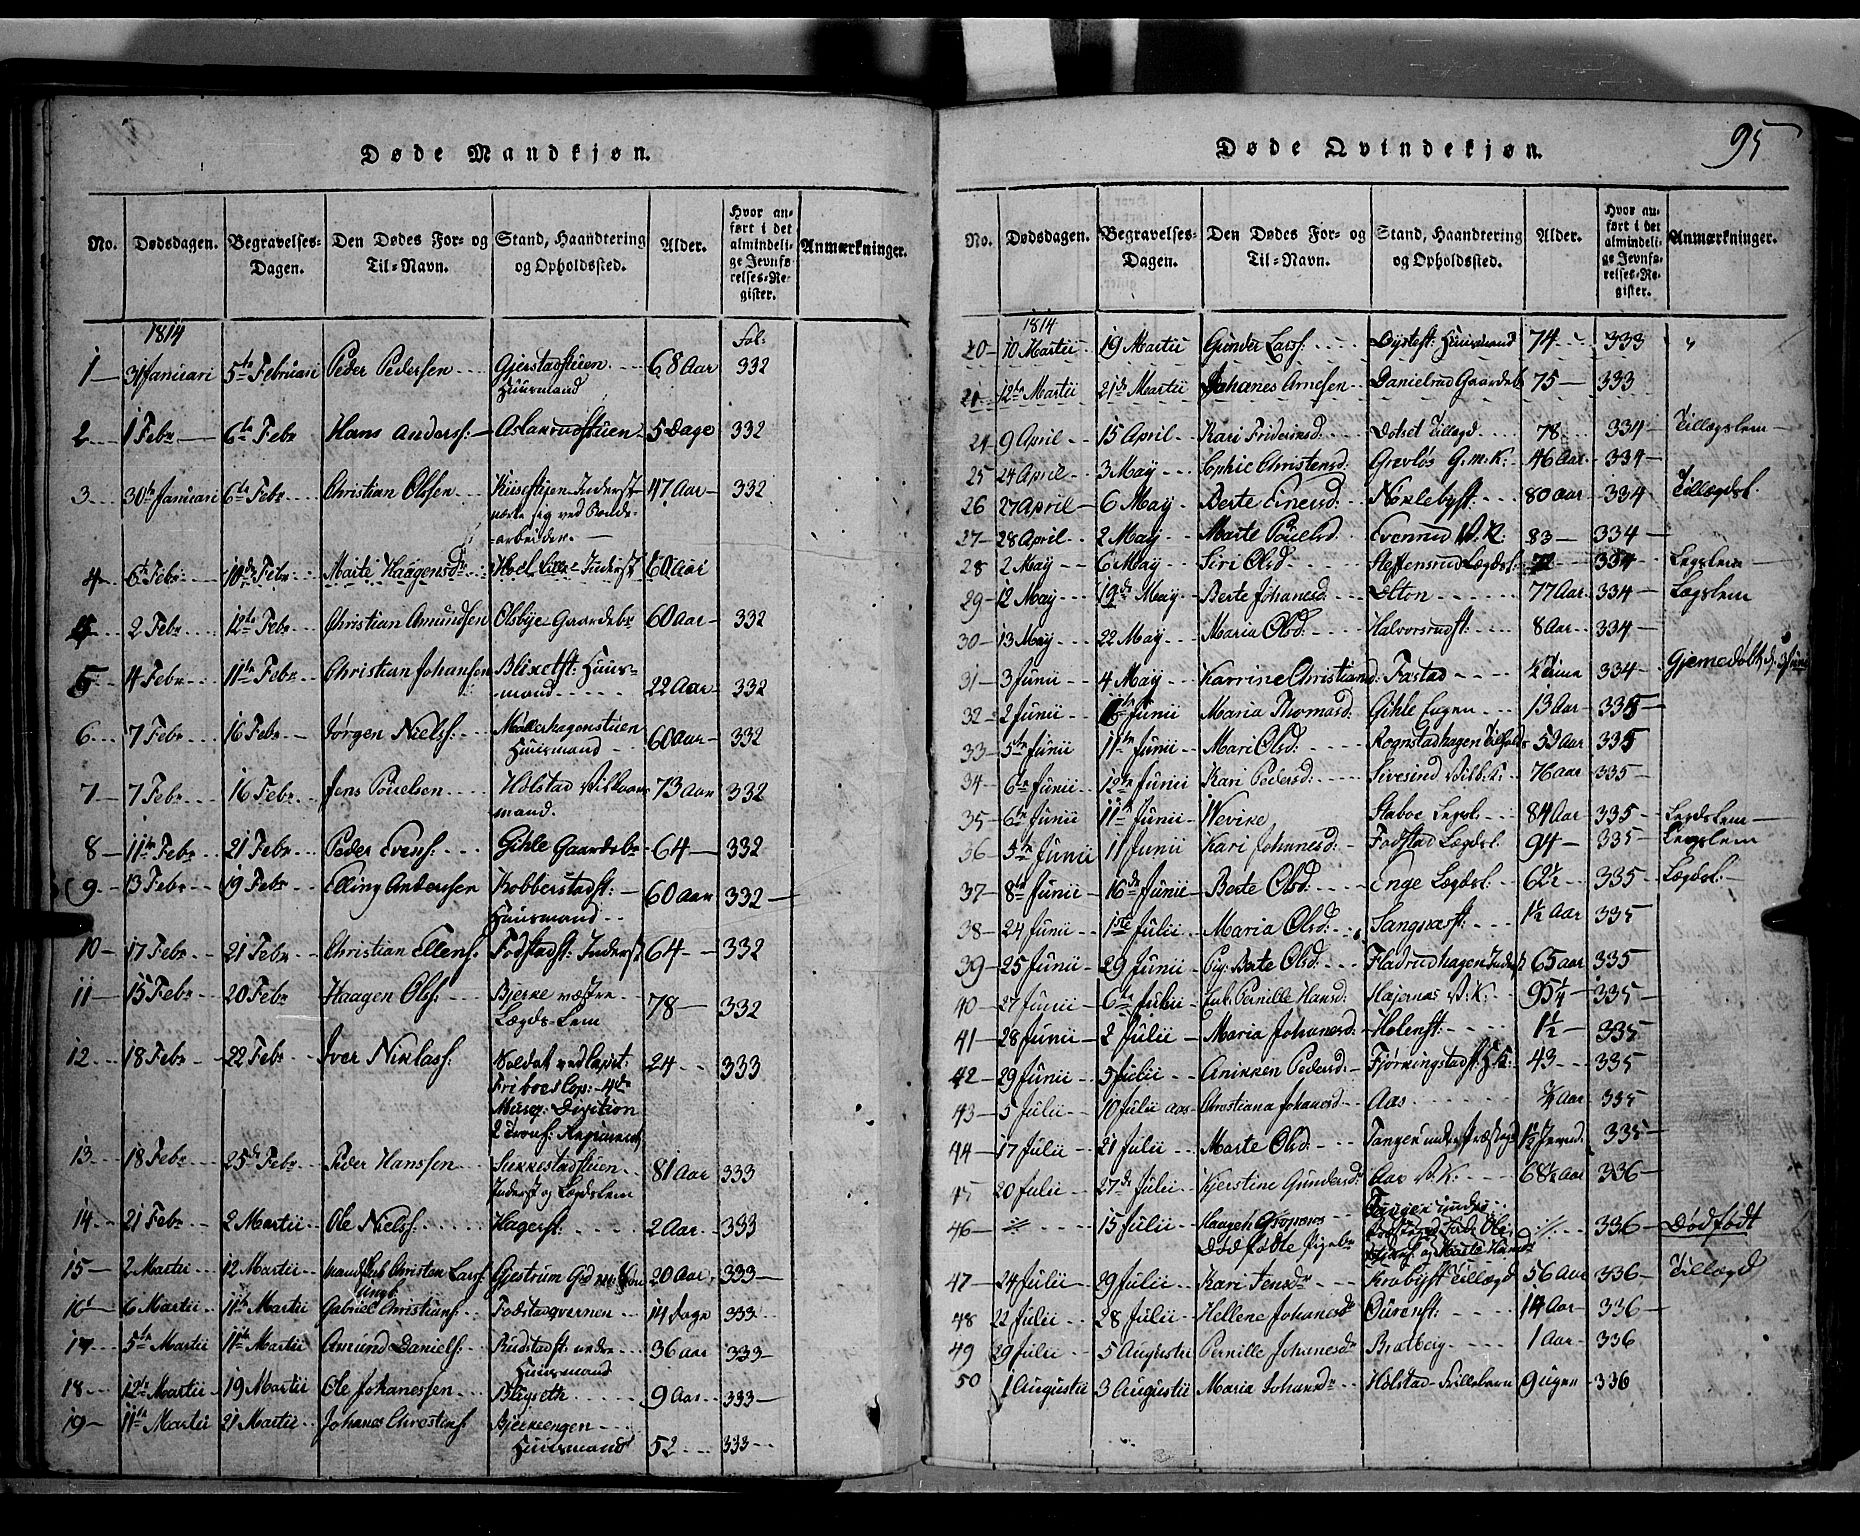 95
Døde Mandkjøn.
No. Dødsdagen. Begravelses-Dagen. Den Dødes For- og Til-Navn. Stand, Haandtering og Opholdssted. Alder. Hvor anført i det almindelige Jevnførelses-Register. Anmærkninger.
1814 Fol:
1 31 Januari 5te Februari Peder Pedersen Gjerstadstuen 68 Aar 332
Huusmand
2 1 Febr 6te Febr Hans Anders: Aslaxrudstuen 5 Dage 332
3 30te Januari 6te Febr Christian Olsen Inderst 47 Aar 332
nærte sig ved Bonde-
arbeide.
4 6te Febr 10de Febr Marte Haagensdr Lille Inderst 60 Aar
2 Febr 12te Febr Christian Amundsen Olsbye Gaardebr 60 Aar 332
5 4 Febr 11te Febr Christian Johansen Blixetst: Huus-
mand 22 Aar 332
6 7 Febr 16 Febr Jørgen Niels: 60 Aar 332
Huusmand
7 7 Febr 16 Febr Jens Pouelsen Holstad Vilkaars- 73 Aar 332
mand.
8 11te Febr 21 Febr Peder Evens: Gihle Gaardebr 64 332
9 13 Febr 19 Febr Elling Andersen Kobberstadst: 60 Aar 332
Huusmand
10 17 Febr 21 Febr Christian Ellens: Fodstadst: Inderst 64 332
11 15 Febr 20 Febr Haagen Ols: Bjerke væstre 78 332
Lægds Lem
12 18 Febr 22 Febr Iver Niklas: Soldat ved Capit: 24 333
Friboes Cop: 4de
Division
Regiment
13 18 Febr 25de Febr Peder Hansen Sukkestadstuen 81 Aar 333
Inderst og Lægdslem
14 21 Febr 2 Martii Ole Niels: Hagerst. 2 Aar 333
15 2 Martii 12 Martii Christen Lars: Gjestrum 20 Aar 333
16 6 Martii 11te Martii Gabriel Christians: Fodstadqvernen 14 Dage 333
17 5te Martii 11te Martii Amund Daniels: Rudstadst: 36 Aar 333
Huusmand
18 12te Martii 19 Martii Ole Johanessen Blagseth 9 Aar 333
19 11te Martii 21 Martii Johanes Christens: Bjerkeengen
Huusmand 52 333
Døde Qvindekjøn.
No. Dødsdagen. Begravelses-Dagen. Den Dødes For- og Til-Navn. Stand, Haandtering og Opholdssted. Alder. Hvor anført i det almindelige Jevnførelses-Register. Anmærkninger.
1814
20 10 Martii 19 Martii Gunder Lars: Huusmand 74 333
21 12te Martii 21de Martii Johanes Arnesen Danielrud Gaardeb: 75 333
24 9 April 15 April Kari Fridericsd: Dotset Tillægd 78 334 Tillægslem
25 24 April 3 May Sophie Christensd: Grevløs G.m.K: 46 Aar 334
26 27 April 6 May Berte Einersd: Noklebyst: 80 aar 334 Tillægdsl.
27 28 April 2 May Marte Pouelsd: Evenrud V.K: 83 334
28 2 May 6 May Siri Olsd: Steffensrud Lægdsl: 334 Legslem
29 12 May 19de May Berte Johanesd: Olton 77 Aar 334 Lægslem
30 13 May 22 May Maria Olsd: Halvorsrudst: 8 Aar 334
31 3 Junii 4 May Karrine Christiand: Fastad 334 Gjemedøbt d. 3 Junii
32 2 Junii Junii Maria Thomasd: Gihle Eegen 13 Aar 335
33 5te Junii 11te Junii Mari Olsd: Rognstadhagen 59 Aar 335
34 6te Junii 12te Junii Kari Pedersd: Sivesind Vilk: K: 76 aar 335
35 6te Junii 11te Junii Nevike Staboe Legsl: 84 Aar 335 Legdslem
36 5te Junii 11 Junii Kari Johanesd: Fodstad Lægdsl: 94 335 Legslem
37 8te Junii 16de Junii Berte Olsd: Enge Lægdsl: 62½ 335 Lægdsl:
38 24 Junii 1ste Julii Maria Olsd: Sangnæst: 1½ Aar 335
39 25 Junii 29 Junii Pig: Berte Olsd: Fladrudhagen Inderst 65 aar 335
40 27 Junii 6te Julii Pernille Hansd: Hajernes V.K: 95¼ 335
41 28 Junii 2 Julii Maria Johanesd: Holenst: 1½ 335
42 29 Junii 5 Julii Anikken Pedersd: Fjørkingstadst: H.K: 43 335
43 5 Julii 10 Julii Christiana Johanesd: Aas ¾ Aar 335
44 17 Julii 21 Julii Marte Olsd: Tangen under 335
45 20 Julii 27de Julii Kjerstine Gundersdr Aas V.K: 68½ Aar 336
46 15 Julii Haagen Tangen under 336 Dødfødt
dødfødte Pigebr og Marte Hansdr
47 24 Julii 29 Julii Kari Jensdr Krabyst Tillægd 56 Aar 336 Tillægd
48 22 Julii 28 Julii Hellene Johanesdr Burenst: 14 Aar 336
49 29 Julii 5 Augustii Pernille Johanesdr Bratberg 1 Aar 336
50 1 Augustii 3 Augustii Maria Johansdr Holstad 9 uger 336